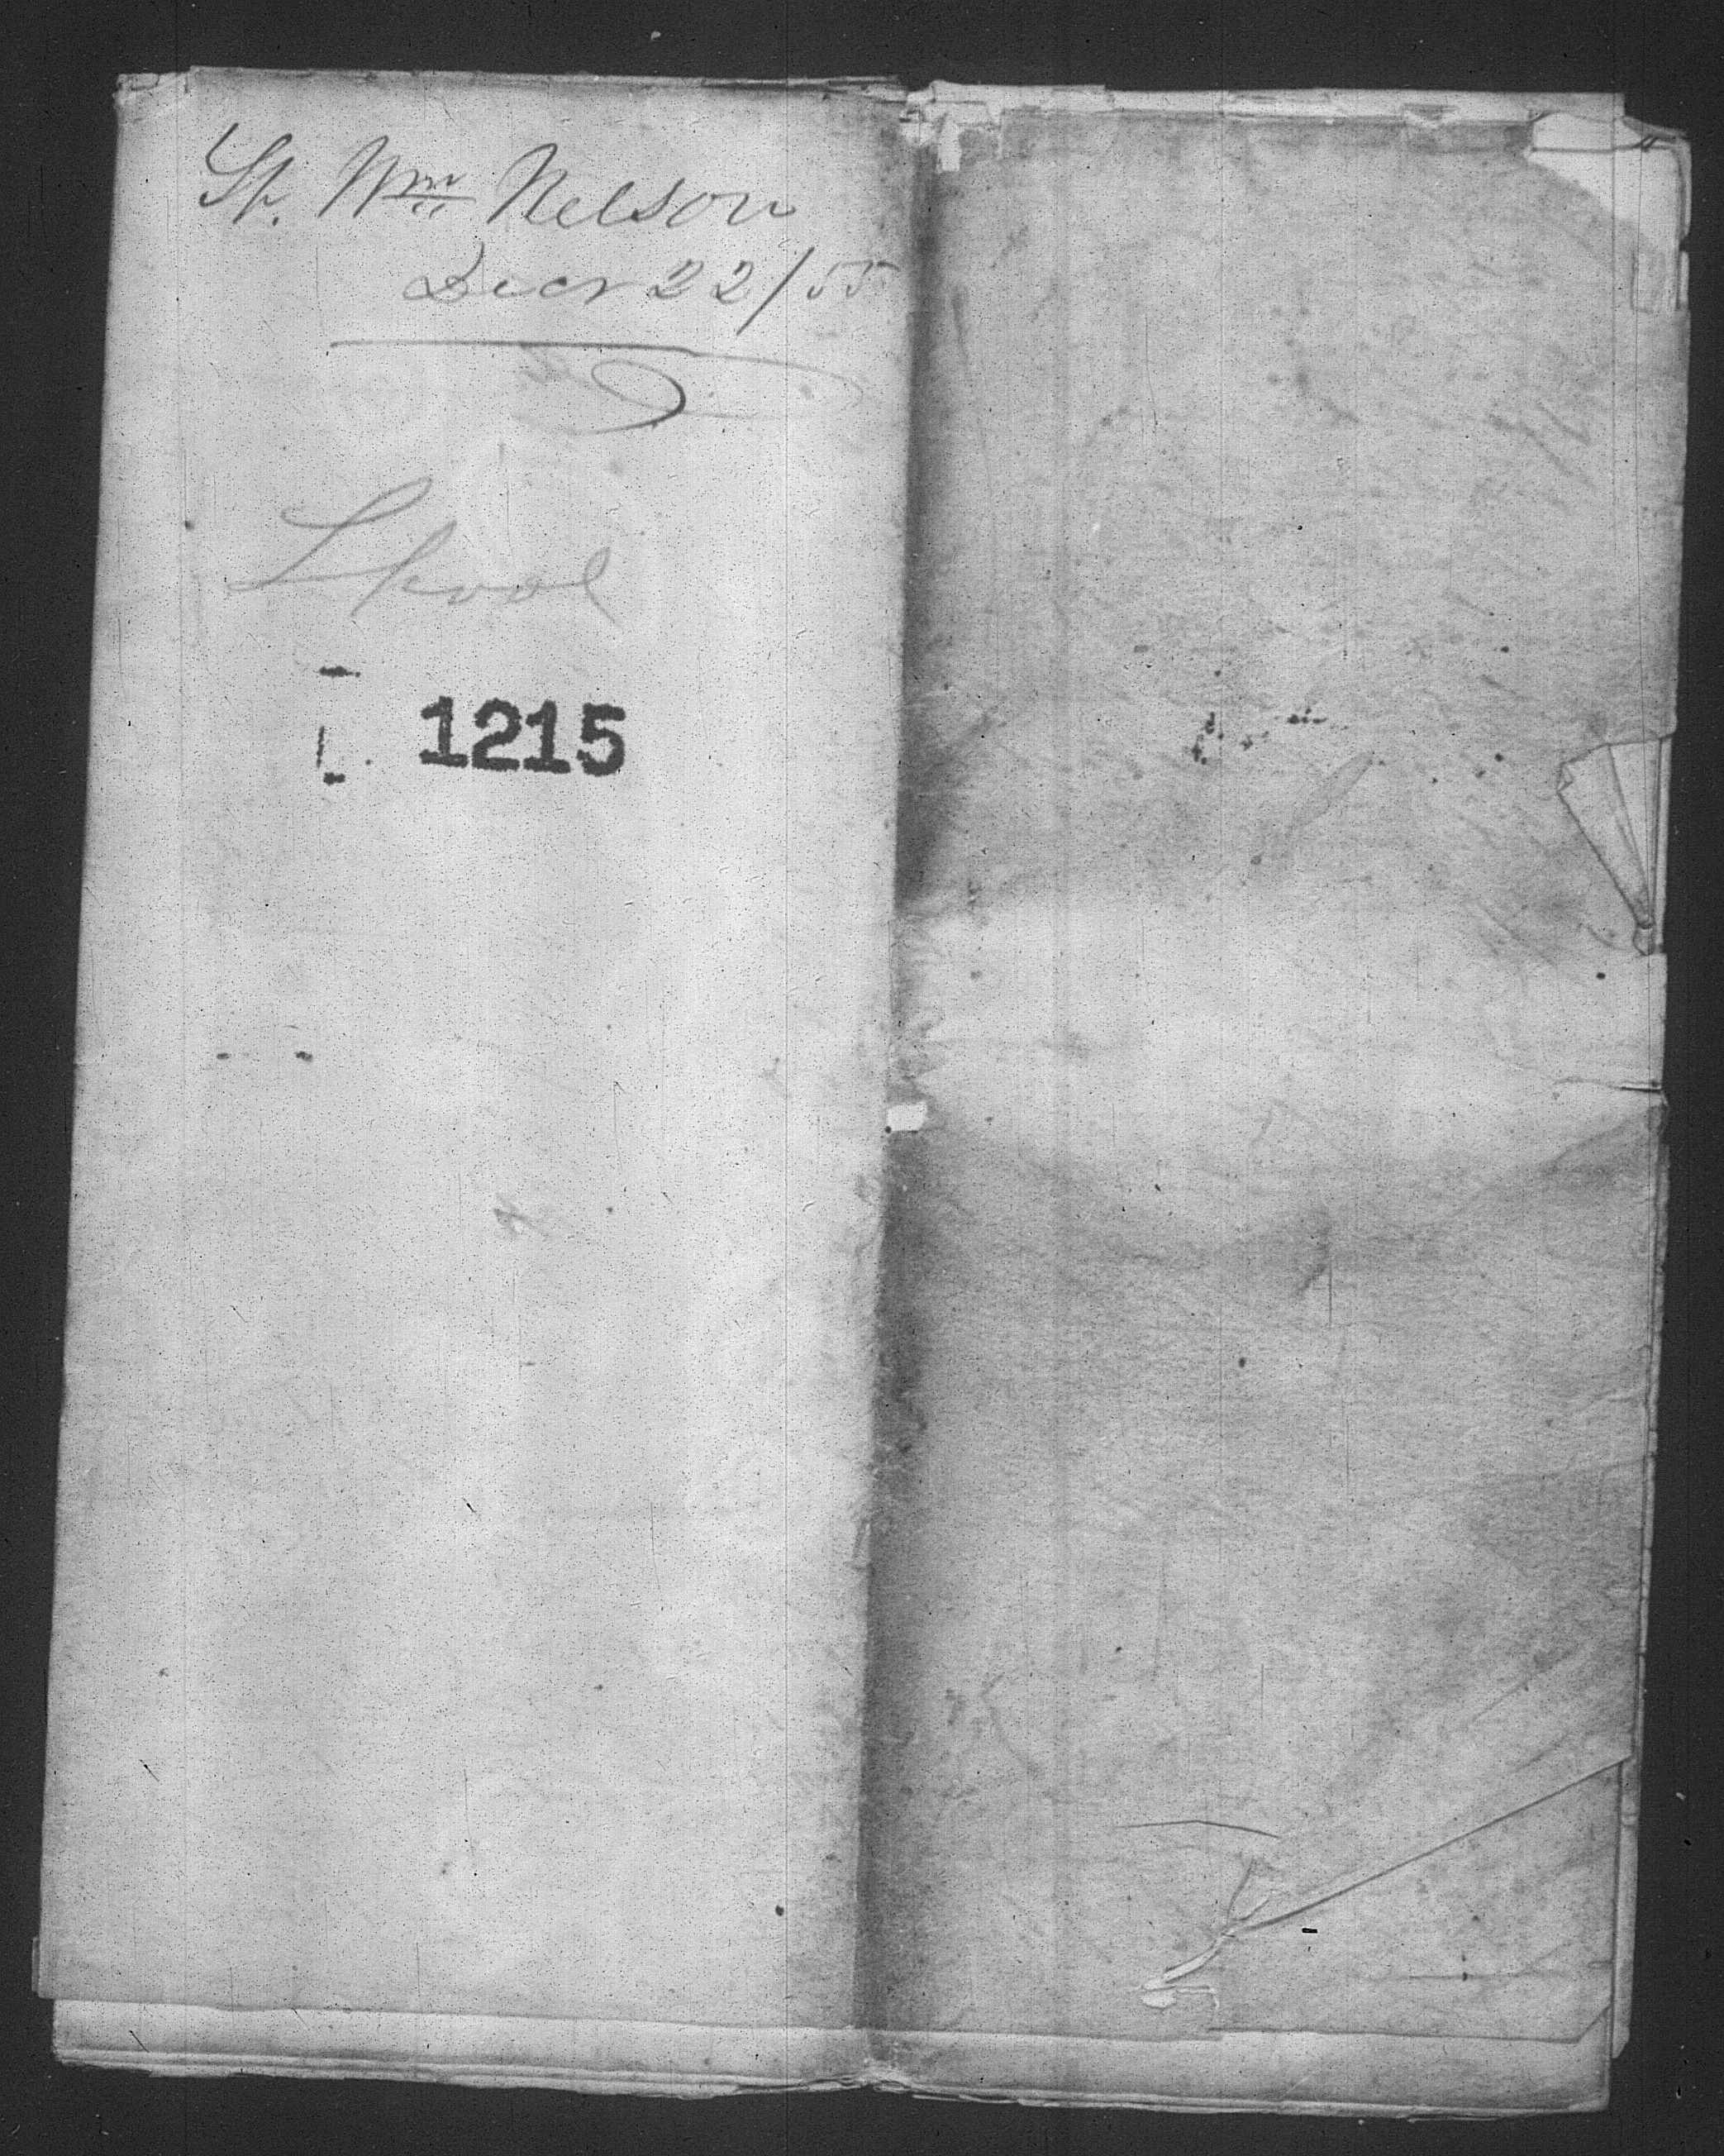 Sp. Wm Nelson
Decr 22/55
Lpool
1215